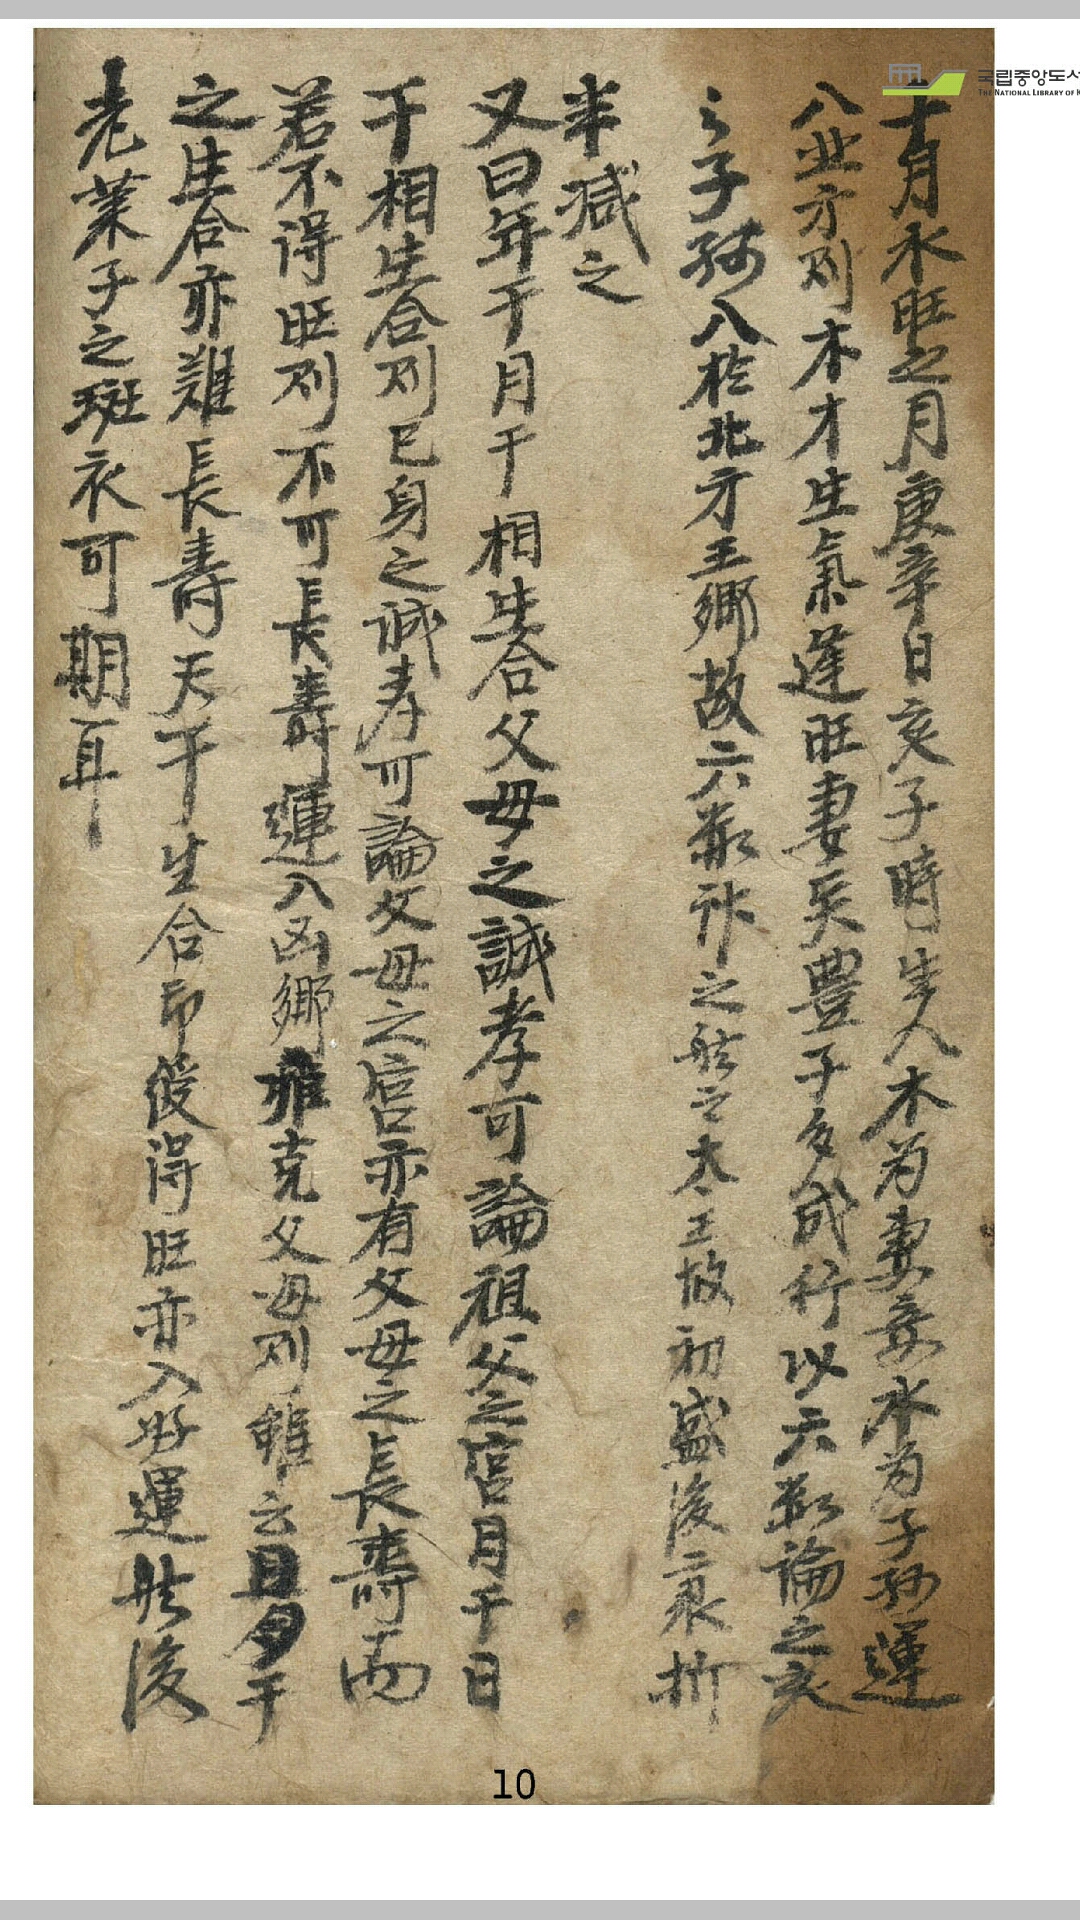 국립중앙도서
THE NATIONAL LIBRARY OF K
十月水旺之月庚辛日亥子時生人木为妻妾水为子孫運
八北方則木才生氣逢旺妻矣豊子多成行以六親論之亥
之子孫八於北方王鄉故六親之然之太王故初盛後衰折
半减之
又曰年干月干相生合父母之誠孝可論祖父之官月干日
干相生合則己身之誠孝可論父母之官亦有父母之長壽而
若不得旺則不可長壽運入凶鄉克父母則雖云日月干
之生合亦難長壽天干生合即後得旺亦入好運然後
老菜子之斑衣可期耳
10